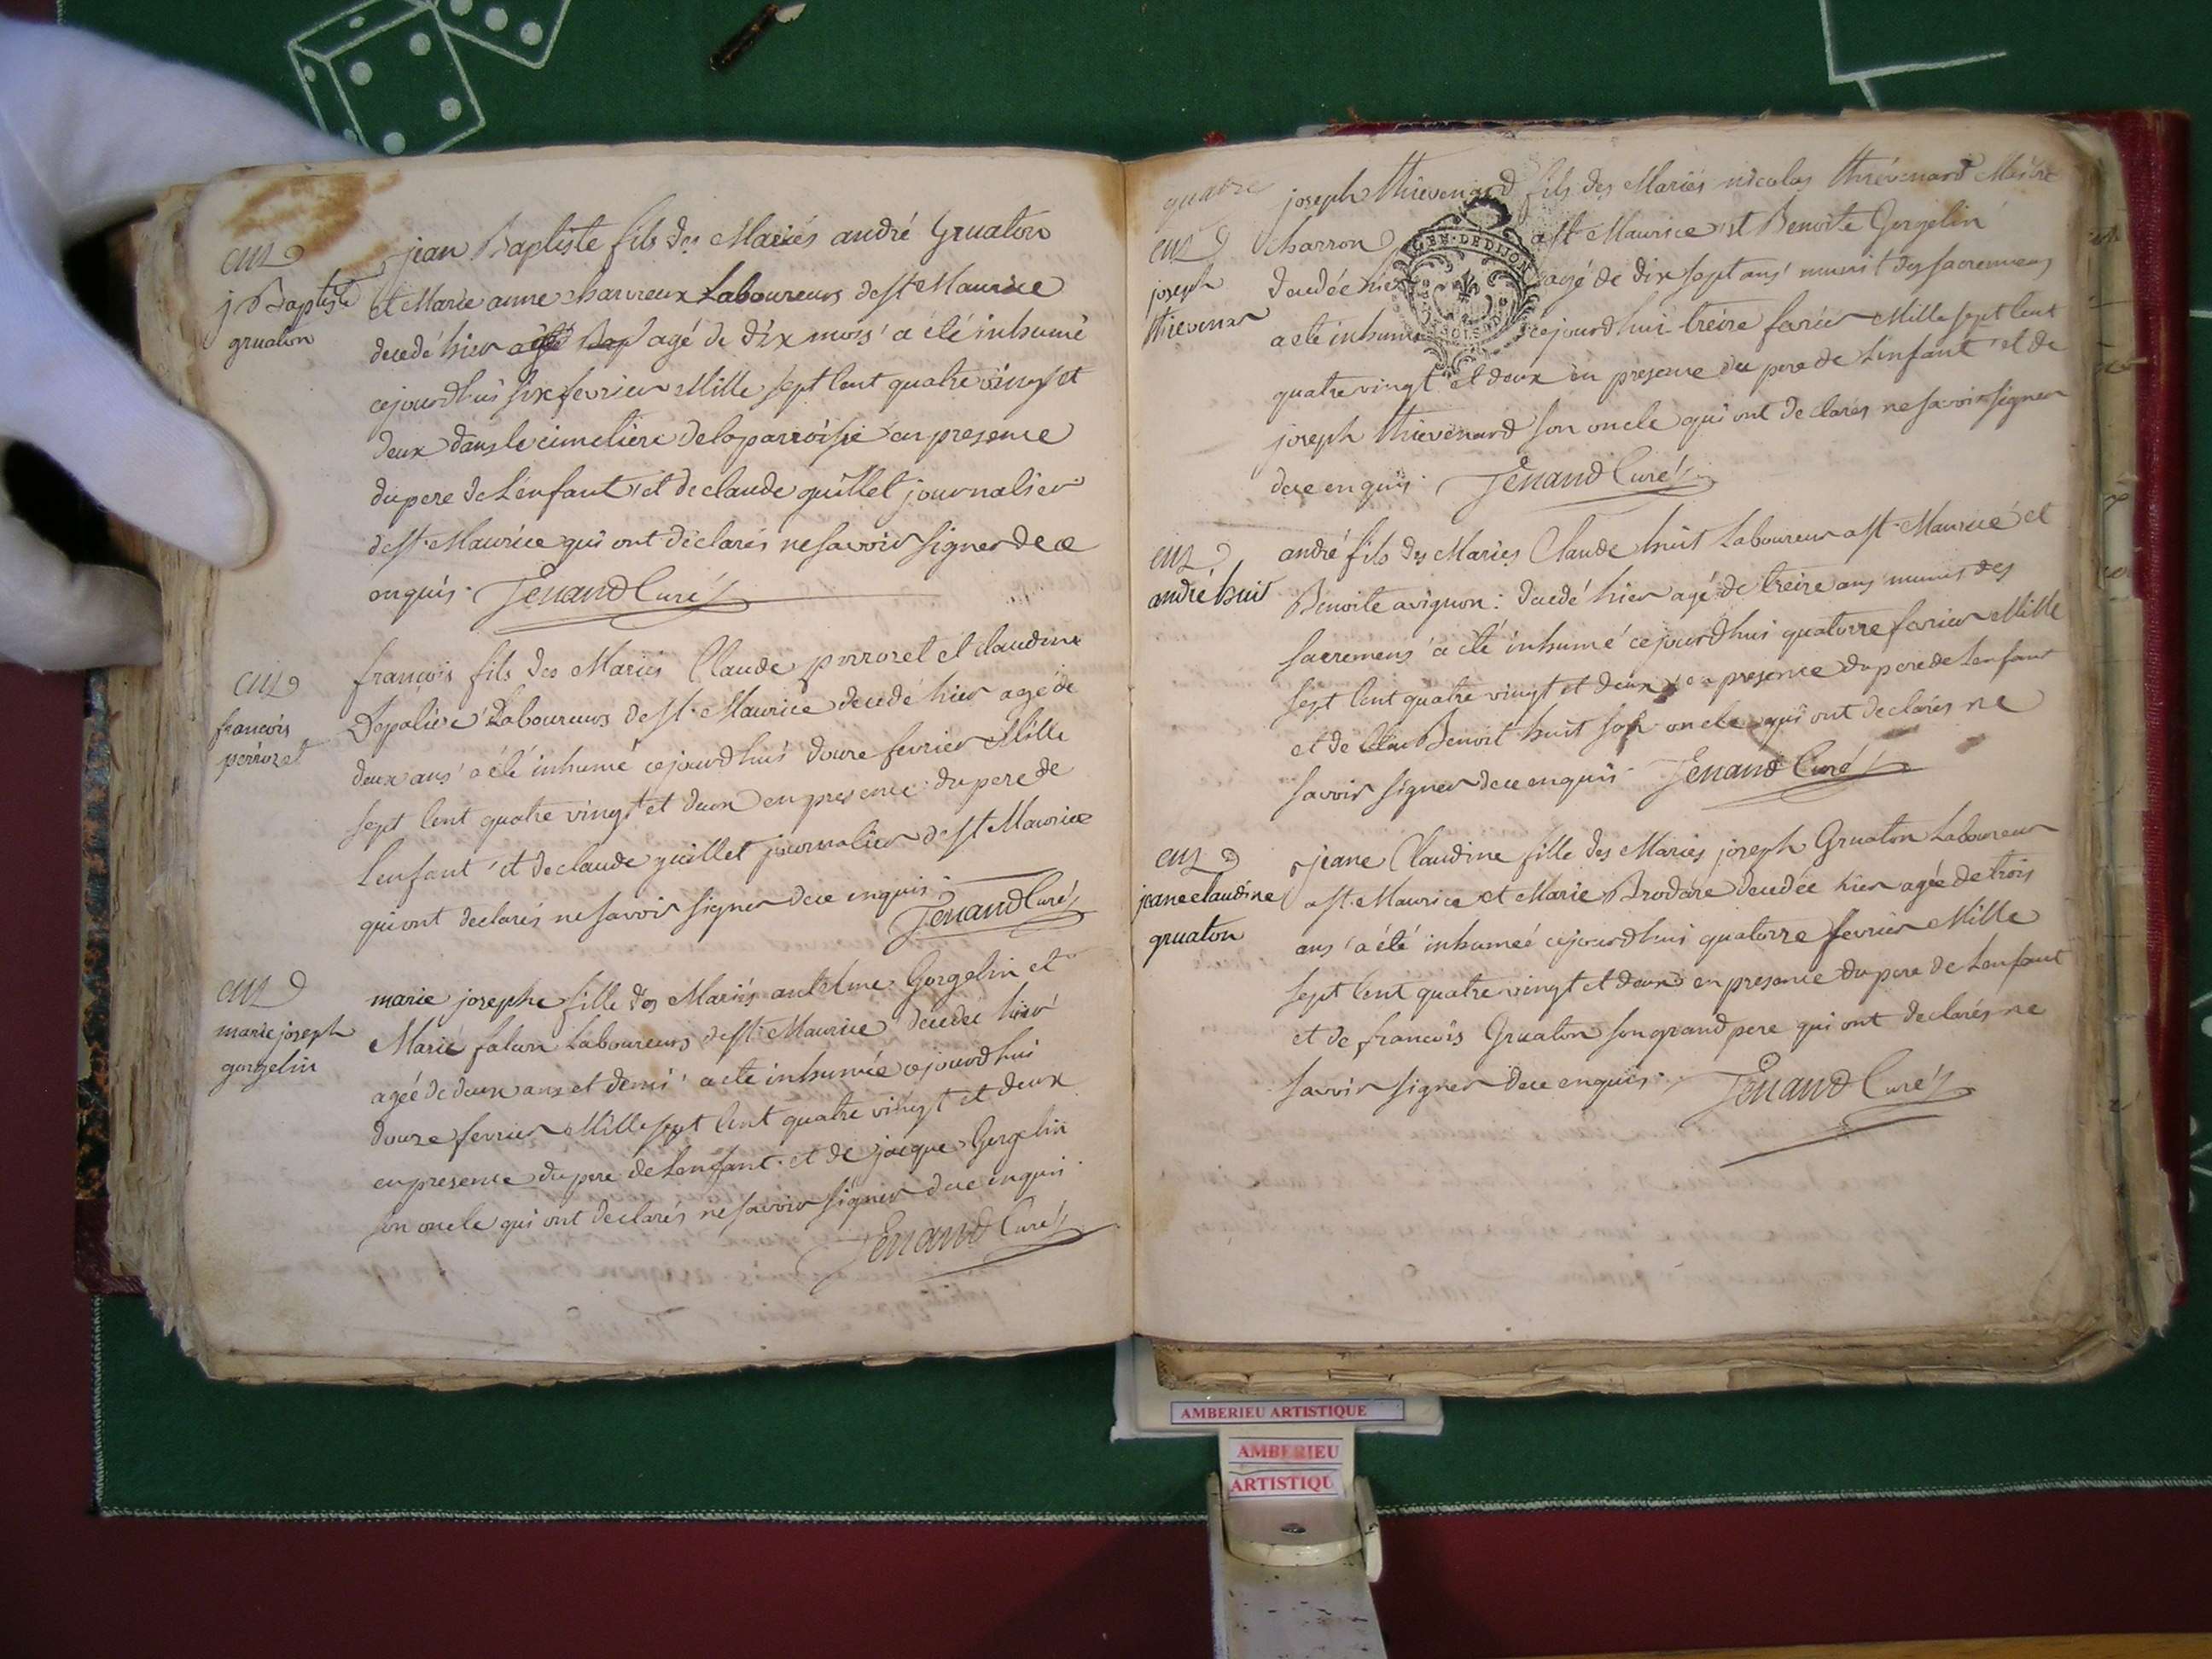 jean Baptiste fils des Mariés andré Gruaton
j Baptiste
gruaton
et Marie anne charveux Laboureurs de st Maurice
decedé hier agé de dix mois a été inhumé
cejourdhui six fevrier Mille sept Cent quatre vingt et
deux dans le cimetiere de la parroisse en presence
du pere de L'enfant et de claude guillet journalier
de st Maurice qui ont déclarés ne savoir signer de ce
enquis. Tenand Curé
françois fils des Mariés Claude perrozet et claudine
françois
perrozet
Laboureurs de st Maurice decedé hier agé de
deux ans a été inhumé cejourdhui douze fevrier Mille
sept Cent quatre vingt et deux en presence du pere de
Lenfant et de claude guillet journalier de st Maurice
qui ont declarés ne savoir signer de ce enquis.
Tenand Curé
marie josephe fille des Mariés antelme Gorgelin et
marie joseph
gorgelin
Marie falcon Laboureurs de st Maurice decedée hier
agée de deux ans et demi a ete inhumée cejourdhui
douze fevrier Mille sept Cent quatre vingt et deux
en presence du pere de Lenfant et de jacque Gorgelin
son oncle qui ont declarés ne savoir signer de ce enquis.
Tenand Curé
quatre
joseph thievenard fils des Mariés nicolas thievenard Maitre
joseph
thievenar
charron a st Maurice et Benoite Gorgelin
decedée hier agé de dix sept ans munit des sacremens
a ete inhumé cejourdhui treize fevrier Mille sept Cent
quatre vingt et deux en presence du pere de L'enfant et de
joseph thievenard son oncle qui ont declarés ne savoir signer
de ce enquis. Tenand Curé
GEN. DE DIJON
andré fils des Mariés Claude huit Laboureur a st Maurice et
andré huit
Benoite avignon: decedé hier agé de treize ans munis des
sacremens a été inhumé cejourdhui quatorze fevrier Mille
sept Cent quatre vingt et deux en presence du pere de Lenfant
et de Benoit huit son oncle qui ont declarés ne
savoir signer de ce enquis. Tenand Curé
jeane Claudine fille des Mariés joseph Gruaton Laboureur
jeane claudine
gruaton
a st Maurice et Marie Brodare decedée hier agée de trois
ans a été inhumeé cejourdhui quatorze fevrier Mille
sept Cent quatre vingt et deux en presence du pere de Lenfant
et de francois Gruaton son grand pere qui ont declarés ne
savoir signer de ce enquis. Tenand Curé
AMBERIEU ARTISTIQUE
AMBERIEU
ARTISTIQU